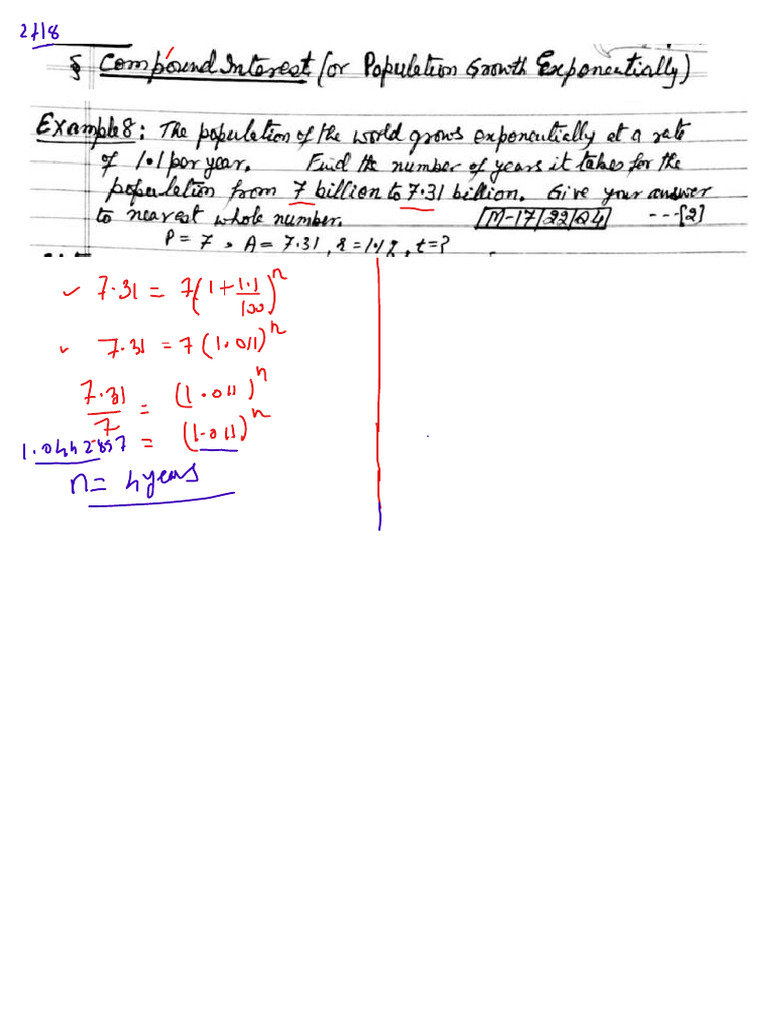 27/8
§ Compound Interest (or Population Growth Exponentially)
Example 8: The population of the world grows exponentially at a rate
of 1.1 per year. Find the number of years it takes for the
population from 7 billion to 7.31 billion. Give your answer
to nearest whole number. M-17/22/Q4 ---[2]
P = 7, A = 7.31, r = 1.1%, t=?
✓ 7.31 = 7(1+1.1/100)^n
✓ 7.31 = 7(1.011)^n
7.31/7 = (1.011)^n
1.0442857 = (1.011)^n
n = 4 years